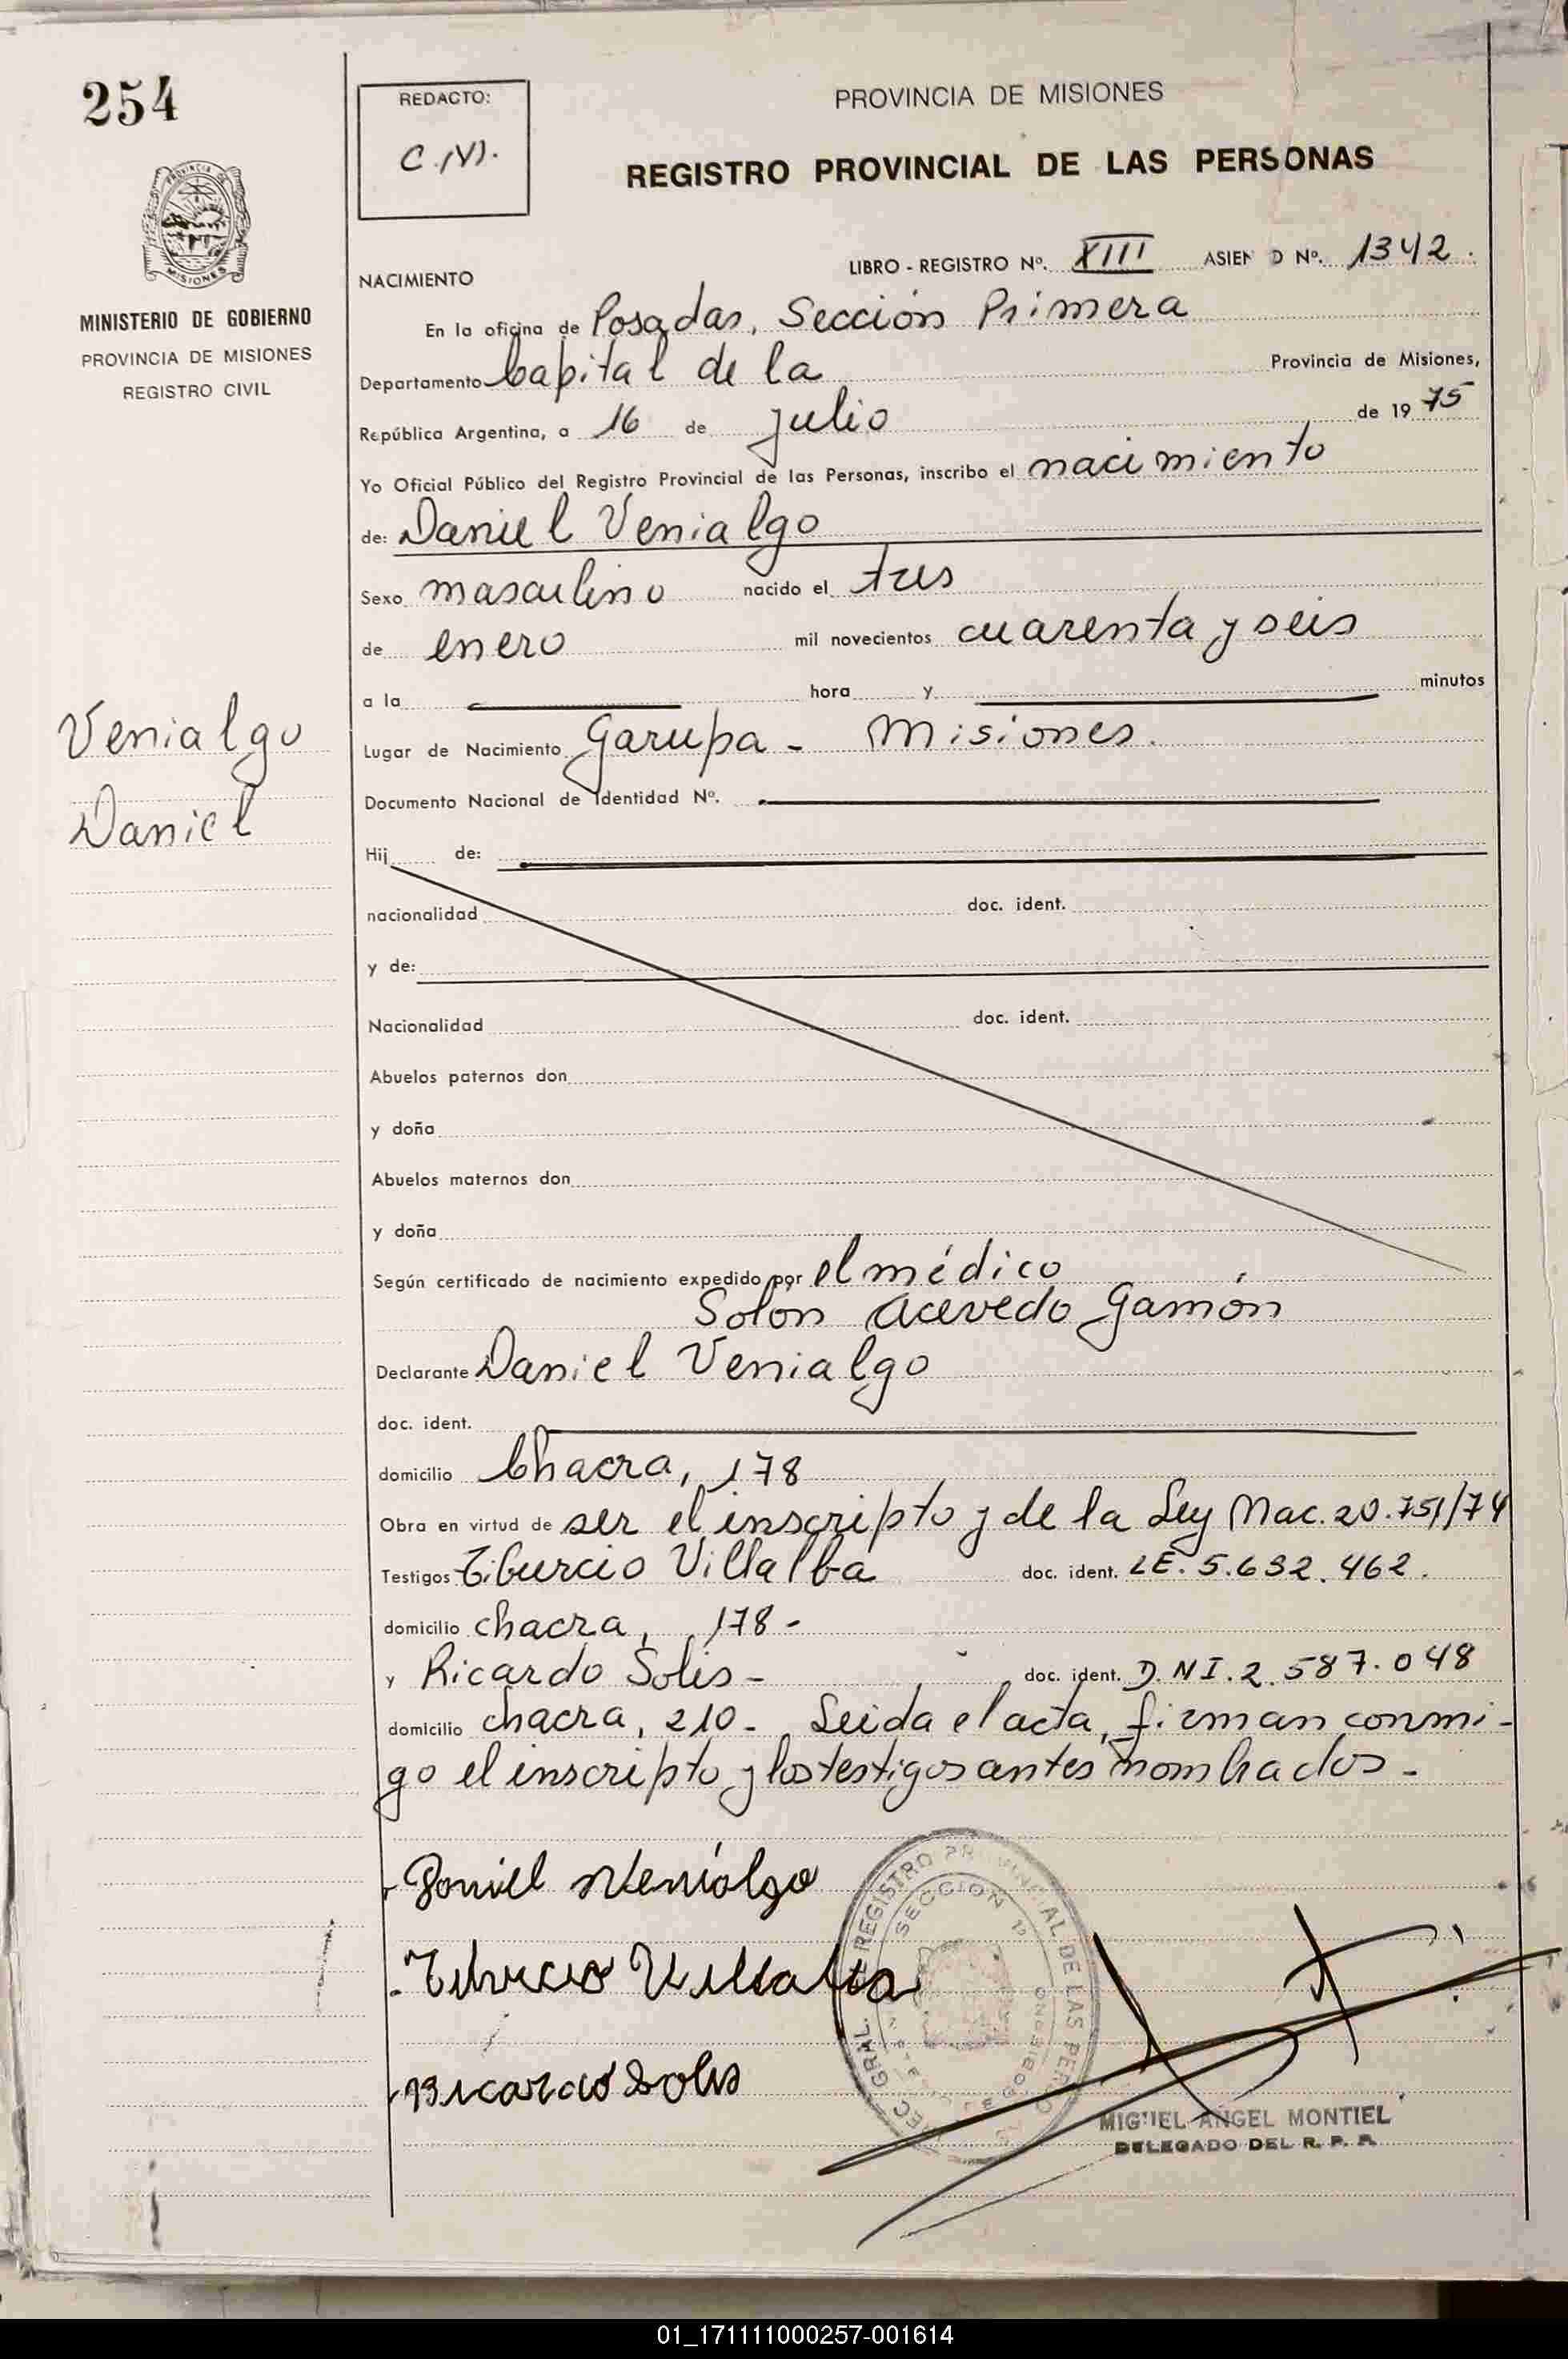 254
REDACTO:
C.M.
PROVINCIA DE MISIONES
REGISTRO PROVINCIAL DE LAS PERSONAS
MINISTERIO DE GOBIERNO
PROVINCIA DE MISIONES
REGISTRO CIVIL
LIBRO - REGISTRO Nº. XIII ASIEN O Nº. 1342.
NACIMIENTO
En la oficina de Posadas, Sección Primera
Departamento Capital de la Provincia de Misiones,
República Argentina, a 16 de julio de 19 75
Yo Oficial Público del Registro Provincial de las Personas, inscribo el nacimiento
de: Daniel Venialgo
Sexo masculino nacido el tres
de enero mil novecientos cuarenta y seis
a la hora y minutos
Venialgo
Daniel
Lugar de Nacimiento Garupa - Misiones.
Documento Nacional de Identidad Nº.
Hij de:
nacionalidad doc. ident.
y de:
Nacionalidad doc. ident.
Abuelos paternos don
y doña
Abuelos maternos don
y doña
Según certificado de nacimiento expedido por el médico
Solón Acevedo Gamón
Declarante Daniel Venialgo
doc. ident.
domicilio Chacra, 178
Obra en virtud de ser el inscripto y de la Ley Nac. 20.751/74
Testigos Tiburcio Villalba doc. ident. LE. 5.632.462.
domicilio chacra, 178-
y Ricardo Solis- doc. ident. D.NI.2.587.048
domicilio chacra, 210- Leida el acta, firman conmi-
go el inscripto y los testigos antes nombrados-
Daniel Venialgo
Tiburcio Villalba
Ricardo Solis
REGISTRO PROVINCIAL DE LAS PERSO
SECCION 1ª
MIGUEL ANGEL MONTIEL
DELEGADO DEL R. P. P.
01_171111000257-001614